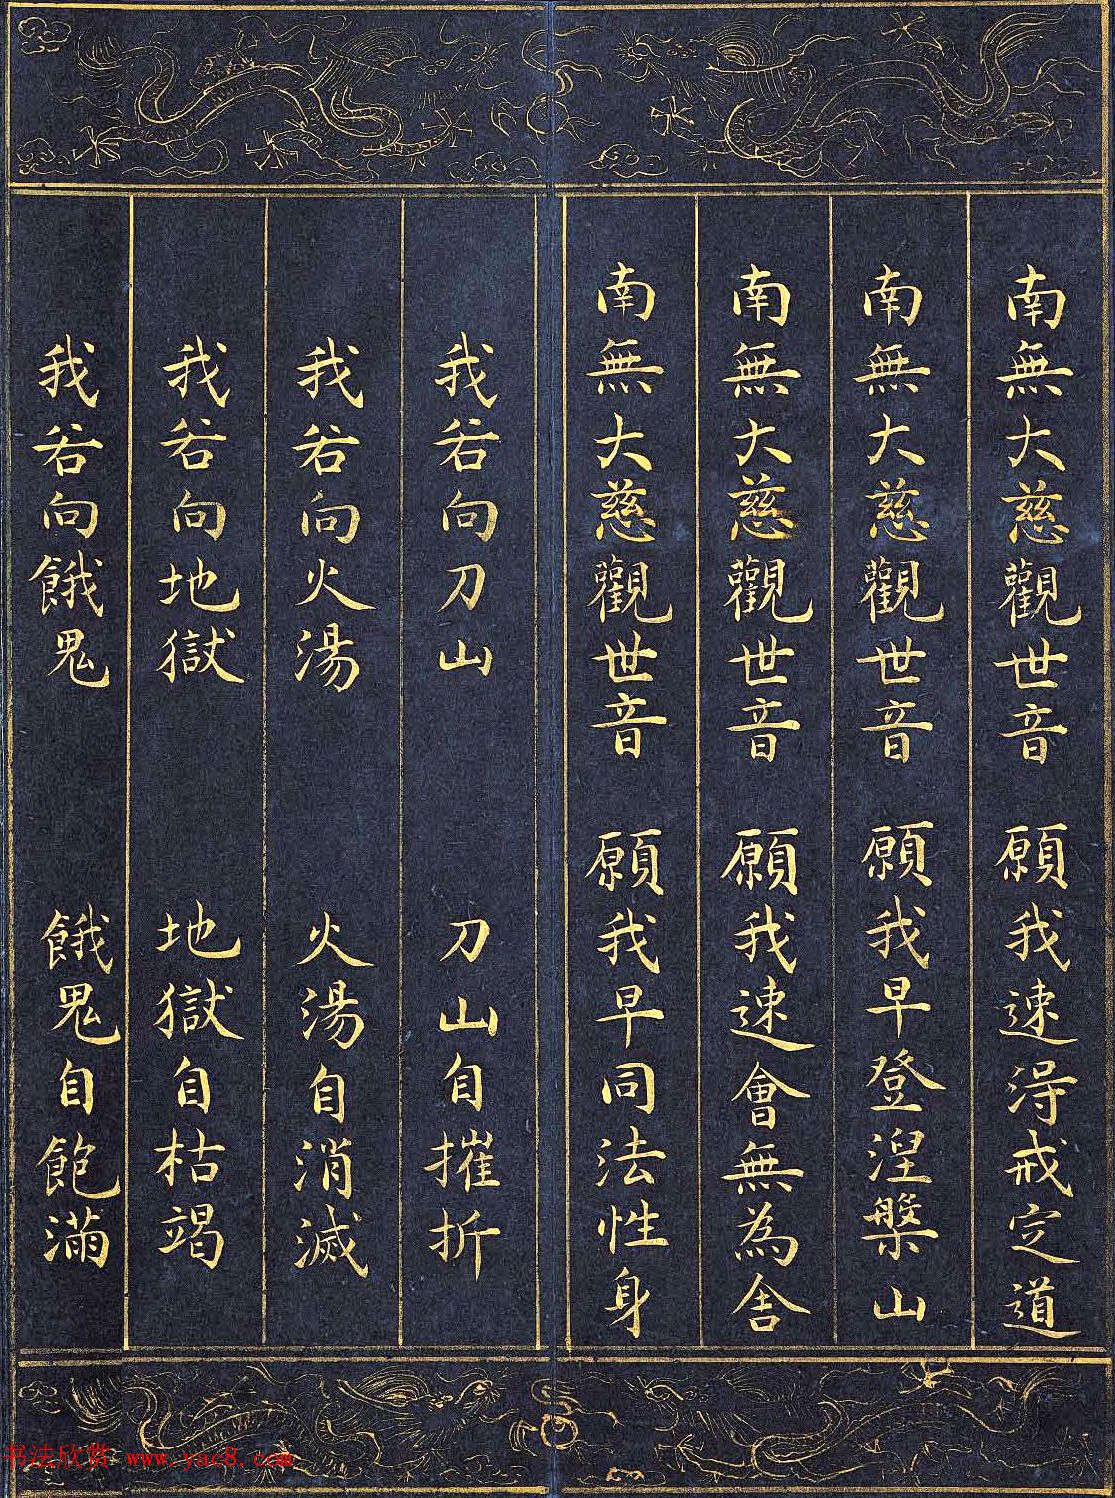 南無大慈觀世音 願我速得戒定道
南無大慈觀世音 願我早登涅槃山
南無大慈觀世音 願我速會無為舍
南無大慈觀世音 願我早同法性身
我若向刀山 刀山自摧折
我若向火湯 火湯自消滅
我若向地獄 地獄自枯竭
我若向餓鬼 餓鬼自飽滿
书法欣赏 www.yac8.com